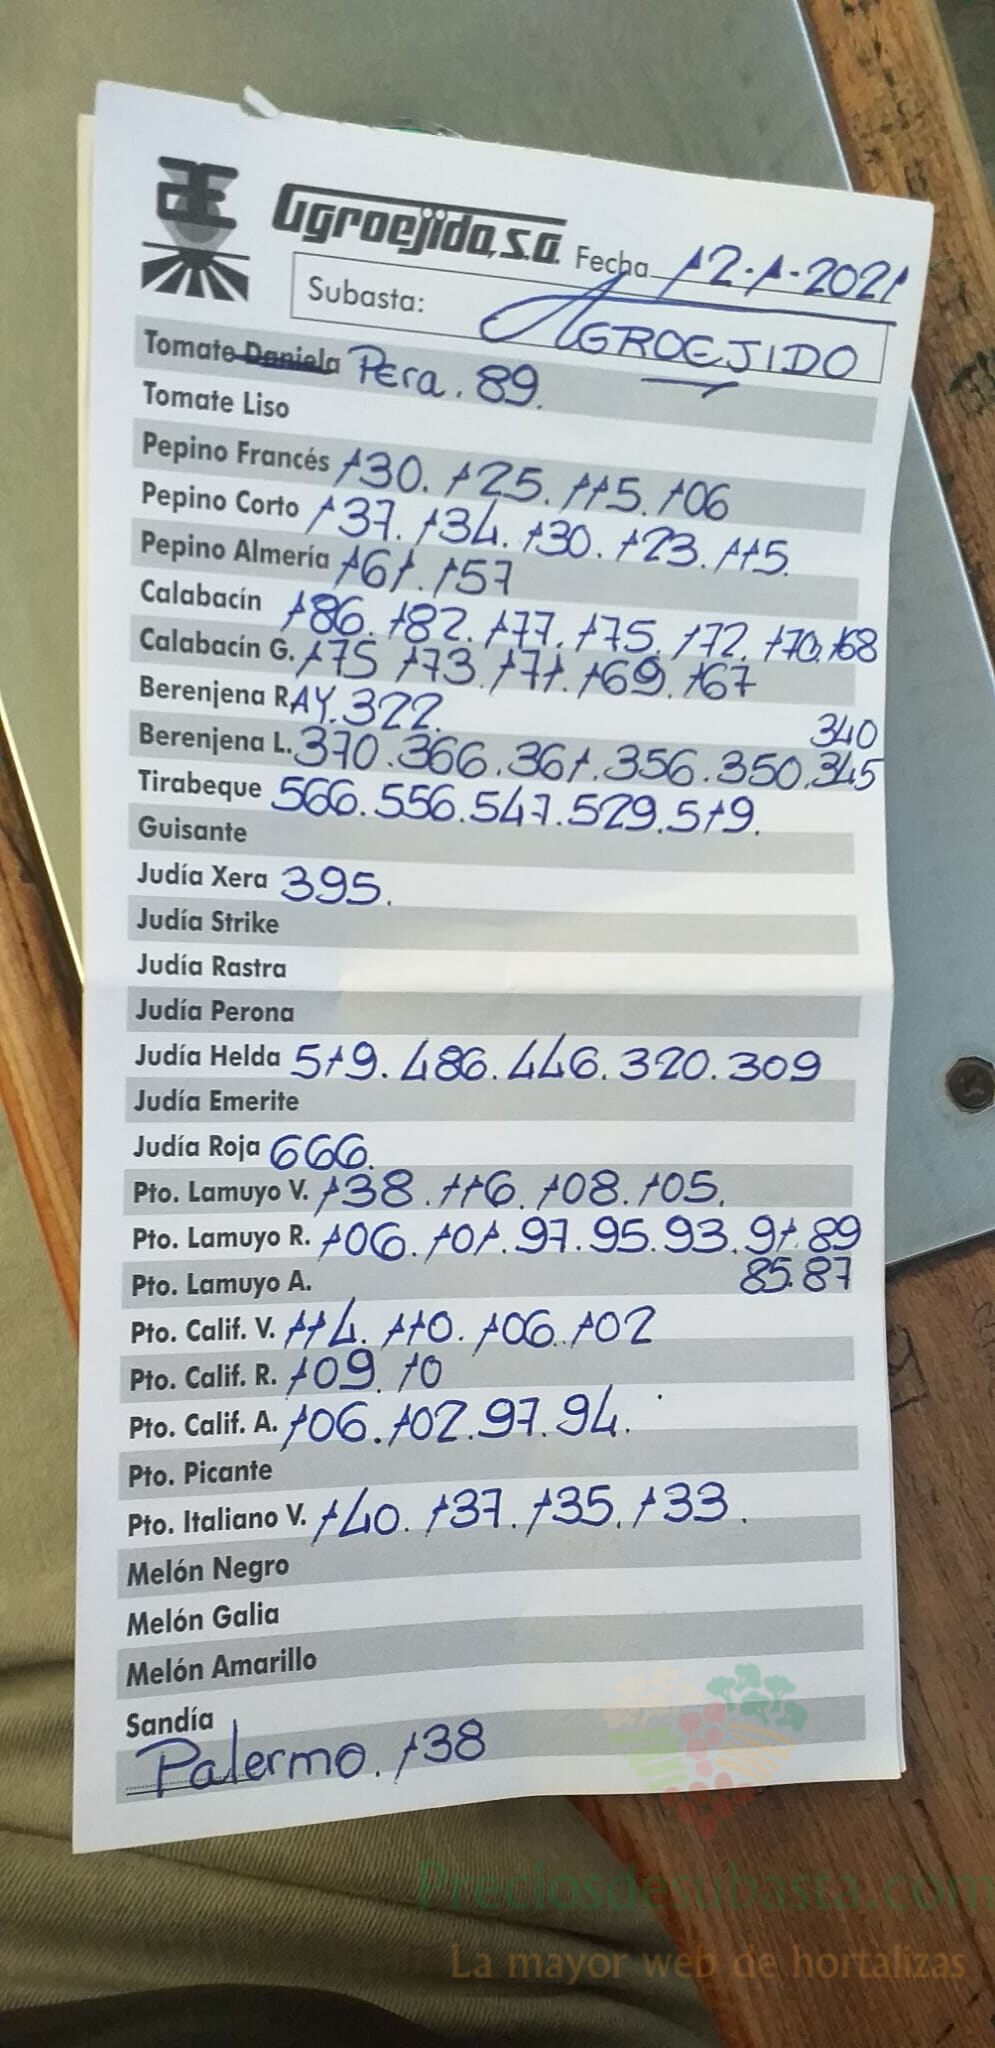 Æ Agroejido, s.a. Fecha 12-1-2021
Subasta: AGROEJIDO
Tomate Daniela Pera. 89.
Tomate Liso
Pepino Francés 130. 125. 115. 106
Pepino Corto 137. 134. 130. 123. 115.
Pepino Almería 161. 157
Calabacín 186. 182. 177. 175. 172. 170. 168
Calabacín G. 175 173. 171. 169. 167
Berenjena RAY. 322.
340
Berenjena L. 370. 366. 361. 356. 350. 345
Tirabeque 566. 556. 547. 529. 519.
Guisante
Judía Xera 395.
Judía Strike
Judía Rastra
Judía Perona
Judía Helda 519. 486. 446. 320. 309
Judía Emerite
Judía Roja 666.
Pto. Lamuyo V. 138. 116. 108. 105.
Pto. Lamuyo R. 106. 101. 97. 95. 93. 91. 89
Pto. Lamuyo A. 85. 87
Pto. Calif. V. 114. 110. 106. 102
Pto. Calif. R. 109. 10
Pto. Calif. A. 106. 102. 97. 94.
Pto. Picante
Pto. Italiano V. 140. 137. 135. 133.
Melón Negro
Melón Galia
Melón Amarillo
Sandía
Palermo. 138
Preciosdesubasta.com
La mayor web de hortalizas